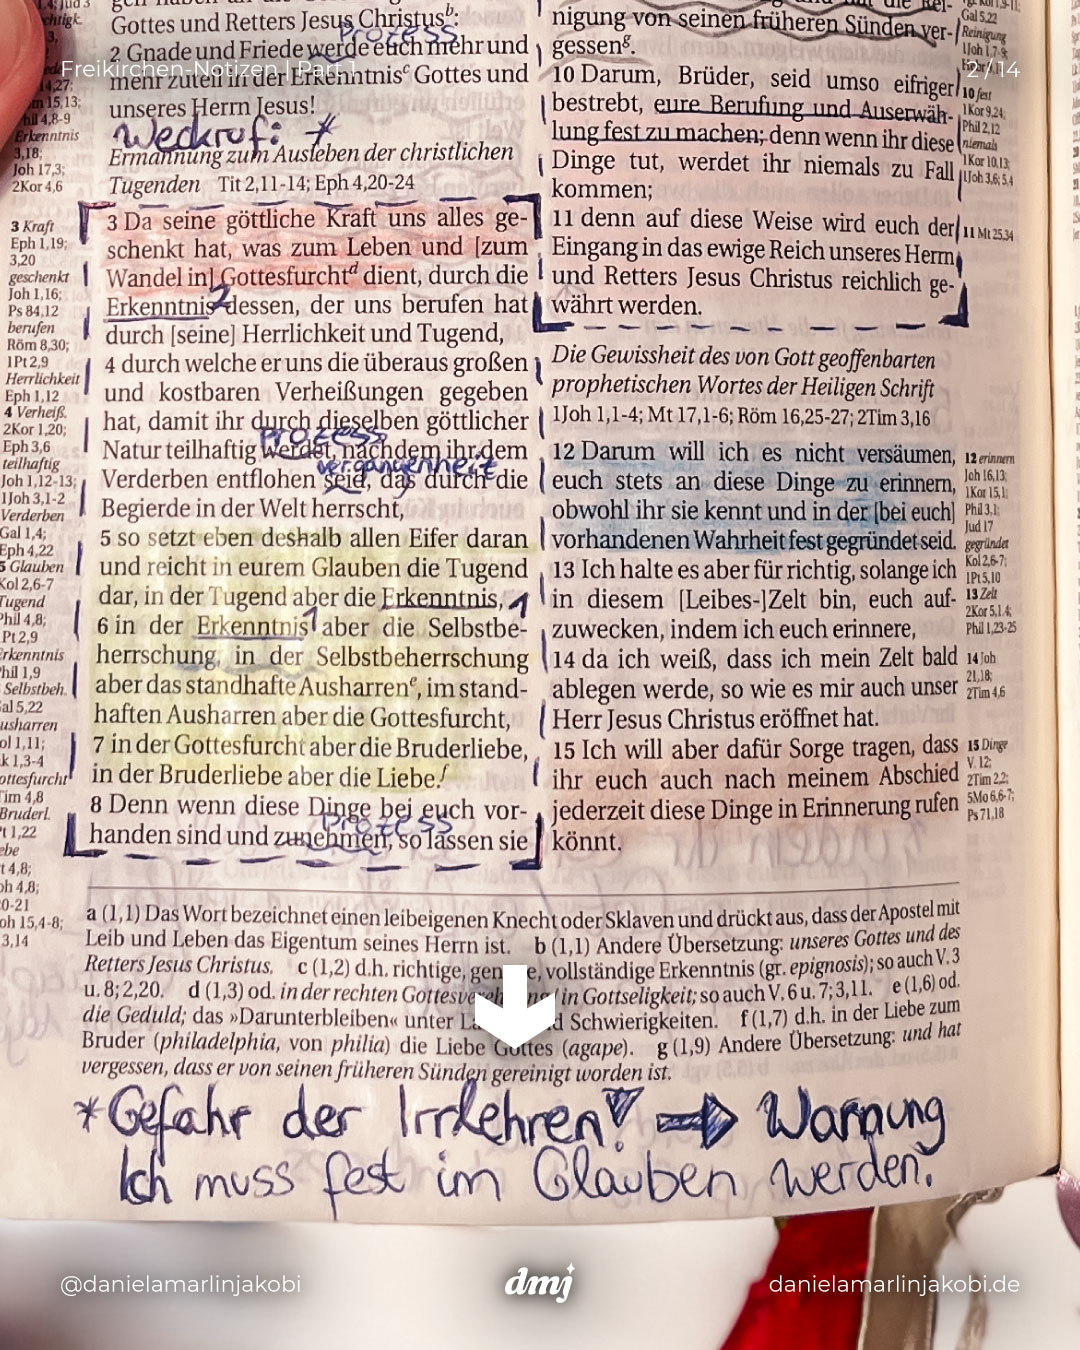 Freikirchen-Notizen | Part 1
2 / 14
Gottes und Retters Jesus Christusb:
Prozess
2 Gnade und Friede werde euch mehr und
mehr zuteil in der Erkenntnisc Gottes und
unseres Herrn Jesus!
Weckruf: *
Ermahnung zum Ausleben der christlichen
Tugenden Tit 2,11-14; Eph 4,20-24
3 Da seine göttliche Kraft uns alles ge-
schenkt hat, was zum Leben und [zum
Wandel in] Gottesfurchtd dient, durch die
Erkenntnis 2 dessen, der uns berufen hat
durch [seine] Herrlichkeit und Tugend,
4 durch welche er uns die überaus großen
und kostbaren Verheißungen gegeben
hat, damit ihr durch dieselben göttlicher
Prozess
Natur teilhaftig werdet, nachdem ihr dem
vergangenheit
Verderben entflohen seid, das durch die
Begierde in der Welt herrscht,
5 so setzt eben deshalb allen Eifer daran
und reicht in eurem Glauben die Tugend
dar, in der Tugend aber die Erkenntnis, 1
6 in der Erkenntnis 1 aber die Selbstbe-
herrschung, in der Selbstbeherrschung
aber das standhafte Ausharrene, im stand-
haften Ausharren aber die Gottesfurcht,
7 in der Gottesfurcht aber die Bruderliebe,
in der Bruderliebe aber die Liebe.f
8 Denn wenn diese Dinge bei euch vor-
Prozess
handen sind und zunehmen, so lassen sie
14,27;
15,13;
4,8-9
Erkenntnis
3,18;
Joh 17,3;
2Kor 4,6
3 Kraft
Eph 1,19;
3,20
geschenkt
Joh 1,16;
Ps 84,12
berufen
Röm 8,30;
1Pt 2,9
Herrlichkeit
Eph 1,12
4 Verheiß.
2Kor 1,20;
Eph 3,6
teilhaftig
Joh 1,12-13;
1Joh 3,1-2
Verderben
Gal 1,4;
Eph 4,22
5 Glauben
Kol 2,6-7
Tugend
Phil 4,8;
Pt 2,9
rkenntnis
hil 1,9
Selbstbeh.
al 5,22
usharren
ol 1,11;
k 1,3-4
ottesfurcht
im 4,8
Bruderl.
t 1,22
ebe
t 4,8;
oh 4,8;
0-21
oh 15,4-8;
3,14
nigung von seinen früheren Sünden ver-
gesseng.
10 Darum, Brüder, seid umso eifriger
bestrebt, eure Berufung und Auserwäh-
lung fest zu machen; denn wenn ihr diese
Dinge tut, werdet ihr niemals zu Fall
kommen;
11 denn auf diese Weise wird euch der
Eingang in das ewige Reich unseres Herrn
und Retters Jesus Christus reichlich ge-
währt werden.
Die Gewissheit des von Gott geoffenbarten
prophetischen Wortes der Heiligen Schrift
1Joh 1,1-4; Mt 17,1-6; Röm 16,25-27; 2Tim 3,16
12 Darum will ich es nicht versäumen,
euch stets an diese Dinge zu erinnern,
obwohl ihr sie kennt und in der [bei euch]
vorhandenen Wahrheit fest gegründet seid.
13 Ich halte es aber für richtig, solange ich
in diesem [Leibes-]Zelt bin, euch auf-
zuwecken, indem ich euch erinnere,
14 da ich weiß, dass ich mein Zelt bald
ablegen werde, so wie es mir auch unser
Herr Jesus Christus eröffnet hat.
15 Ich will aber dafür Sorge tragen, dass
ihr euch auch nach meinem Abschied
jederzeit diese Dinge in Erinnerung rufen
könnt.
Gal 5,22
Reinigung
1Joh 1,7-9;
10 fest
1Kor 9,24;
Phil 2,12
niemals
1Kor 10,13;
1Joh 3,6; 5,4
11 Mt 25,34
12 erinnern
Joh 16,13;
1Kor 15,1;
Phil 3,1;
Jud 17
gegründet
Kol 2,6-7;
1Pt 5,10
13 Zelt
2Kor 5,1.4;
Phil 1,23-25
14 Joh
21,18;
2Tim 4,6
15 Dinge
V. 12;
2Tim 2,2;
5Mo 6,6-7;
Ps 71,18
a (1,1) Das Wort bezeichnet einen leibeigenen Knecht oder Sklaven und drückt aus, dass der Apostel mit
Leib und Leben das Eigentum seines Herrn ist. b (1,1) Andere Übersetzung: unseres Gottes und des
Retters Jesus Christus. c (1,2) d.h. richtige, gen e, vollständige Erkenntnis (gr. epignosis); so auch V. 3
u. 8; 2,20. d (1,3) od. in der rechten Gottesvereh ng / in Gottseligkeit; so auch V. 6 u. 7; 3,11. e (1,6) od.
die Geduld; das »Darunterbleiben« unter La d Schwierigkeiten. f (1,7) d.h. in der Liebe zum
Bruder (philadelphia, von philia) die Liebe Gottes (agape). g (1,9) Andere Übersetzung: und hat
vergessen, dass er von seinen früheren Sünden gereinigt worden ist.
*Gefahr der Irrlehren! ⇒ Warnung
Ich muss fest im Glauben werden.
@danielamarlinjakobi
dmj
danielamarlinjakobi.de